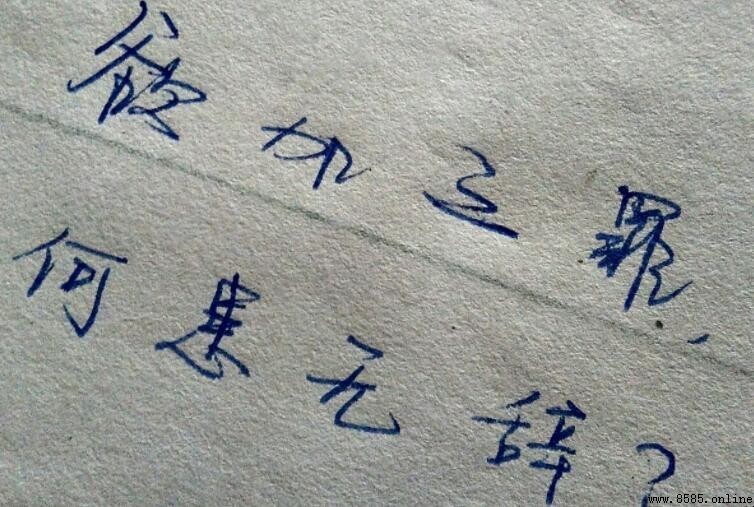 欲加之罪,
何患无辞?
www.8585.online